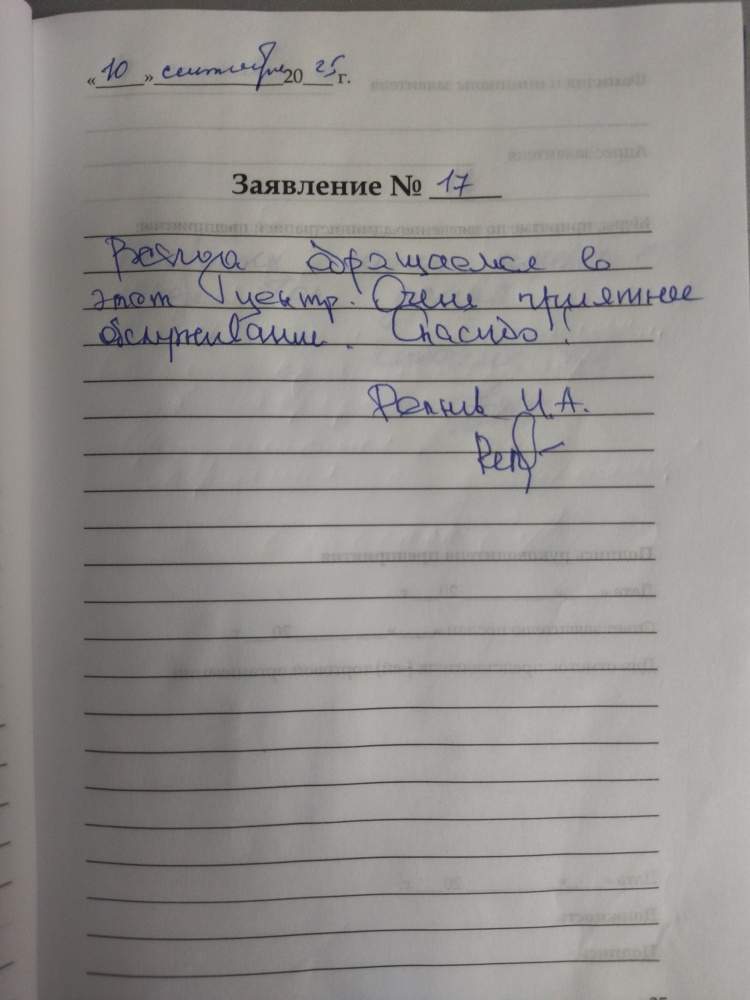 «10» сентября 2025 г.
Заявление № 17
Всегда обращаемся во
этот центр. Очень приятное
обслуживание. Спасибо!!
И.А.